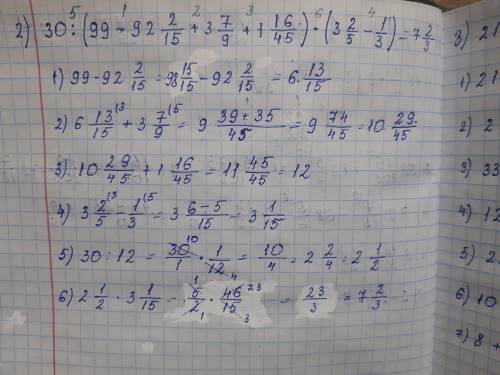 2) 30 : (99 - 92 2/15 + 3 7/9 + 1 16/45) · (3 2/5 - 1/3) = 7 2/3
5 1 2 3 6 4
1) 99 - 92 2/15 = 98 15/15 - 92 2/15 = 6 13/15
2) 6 13/15 (3 + 3 7/9 (5 = 9 (39 + 35)/45 = 9 74/45 = 10 29/45
3) 10 29/45 + 1 16/45 = 11 45/45 = 12
4) 3 2/5 (3 - 1/3 (5 = 3 (6 - 5)/15 = 3 1/15
5) 30 : 12 = 30/1 · 1/12 = 10/4 = 2 2/4 = 2 1/2
10 4
6) 2 1/2 · 3 1/15 = 5/2 · 46/15 = 23/3 = 7 2/3
1 1 23 3
3) 21
1) 21
2) 2
3) 33
4) 12
5) 2
6) 10
7) 8 +